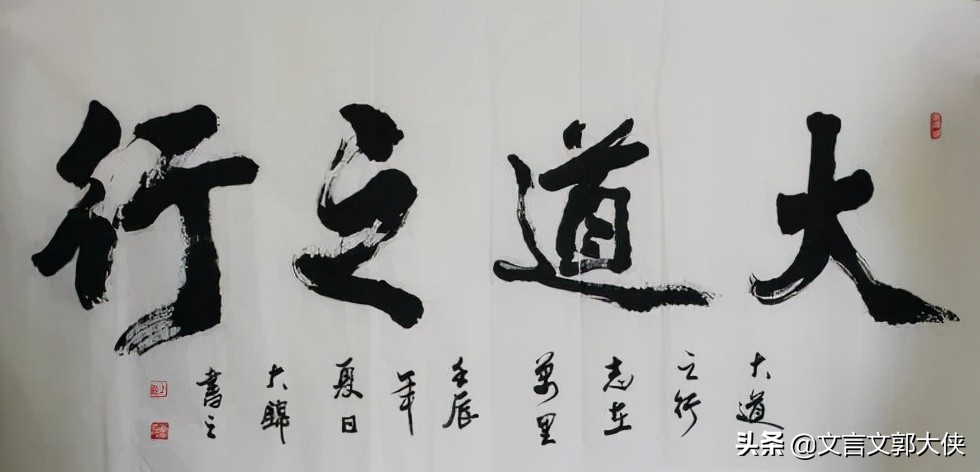 大道之行
大道
之行
志在
萬里
壬辰
年
夏日
大錦
書之
头条 @文言文郭大侠